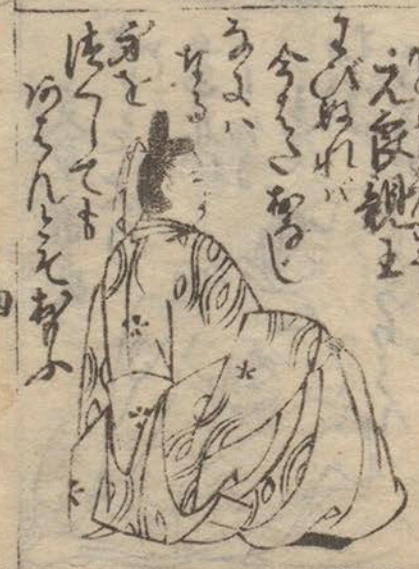 元良親王
わびぬれバ
今はたおなじ
なにハ
なる
身を
つくしても
あはんとぞ思ふ